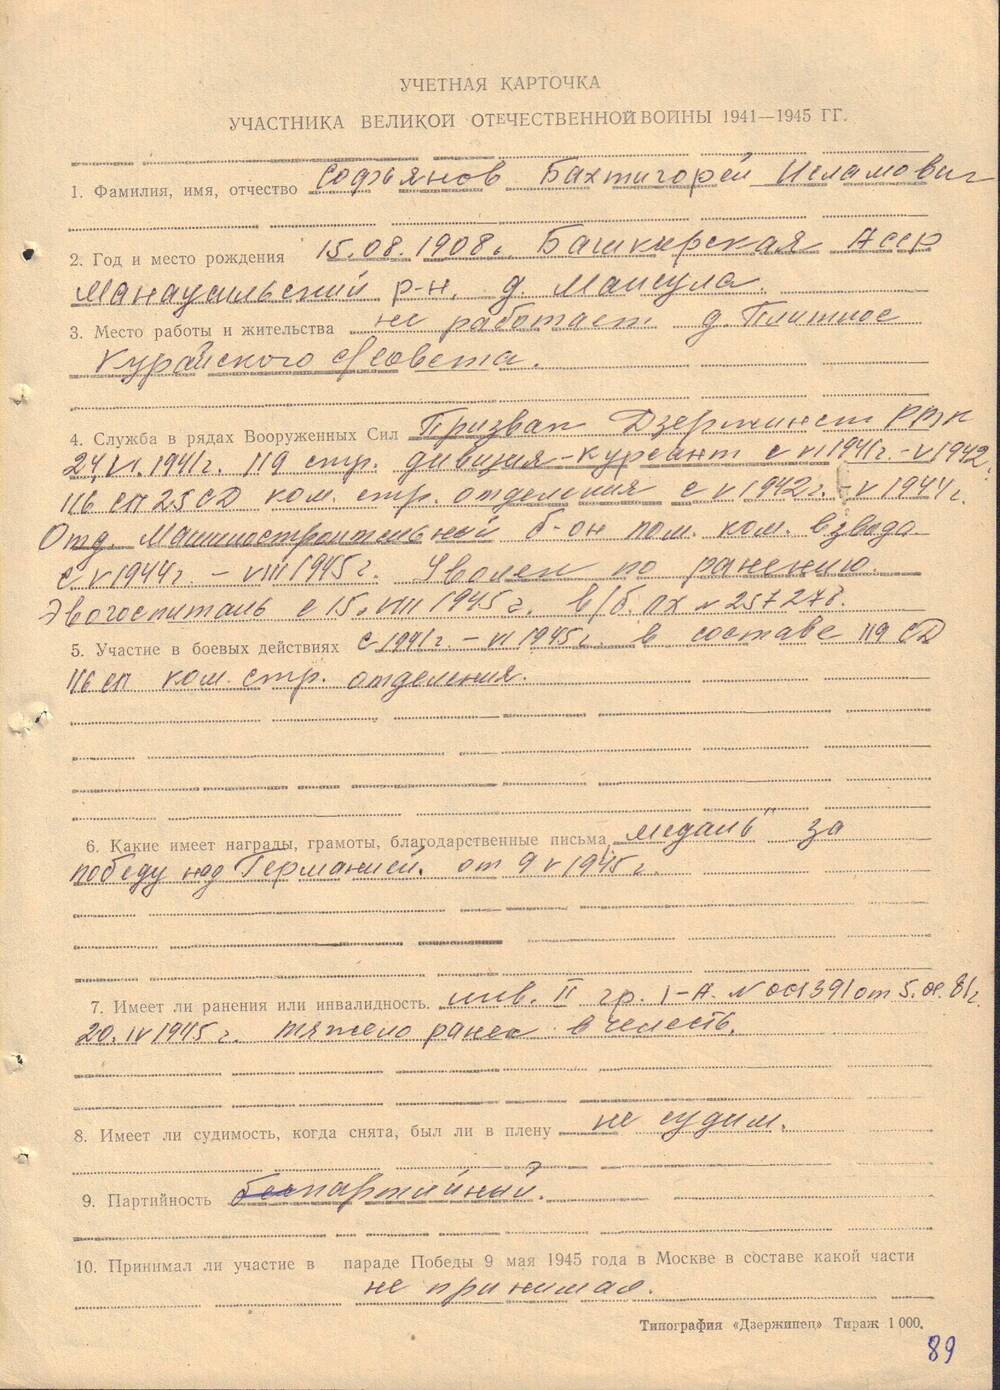 УЧЕТНАЯ КАРТОЧКА
УЧАСТНИКА ВЕЛИКОЙ ОТЕЧЕСТВЕННОЙ ВОЙНЫ 1941—1945 ГГ.
1. Фамилия, имя, отчество Софьянов Бахтигорей Исламович
2. Год и место рождения 15.08.1908г. Башкирская АССР
р-н, д.
3. Место работы и жительства не работает д. Плитное
Курайского с/совета.
4. Служба в рядах Вооруженных Сил Призван Дзержинск РВК
24.VI.1941г. 119 стр. дивизия-курсант с VI 1941г.-V 1942
116 сп 25 СД ком. стр. отделения с V 1942г.-V 1944г.
Отд. Машиностроительный б-он пом. ком. взвода
с V 1944г. - VIII 1945г. Уволен по ранению.
Эвогоспиталь с 15.VIII 1945г. в/б. ОХ №257278.
5. Участие в боевых действиях с 1941г. - VI 1945г. в составе 119 СД
116 сп ком. стр. отделения.
6. Какие имеет награды, грамоты, благодарственные письма медаль за
победу над Германией. от 9 V 1945г.
7. Имеет ли ранения или инвалидность. инв. II гр. 1-А. № от 5. 81г.
20.IV 1945г. тяжело ранен в челюсть.
8. Имеет ли судимость, когда снята, был ли в плену не судим.
9. Партийность беспартийный.
10. Принимал ли участие в параде Победы 9 мая 1945 года в Москве в составе какой части
не принимал.
Типография «Дзержинец» Тираж 1 000.
89